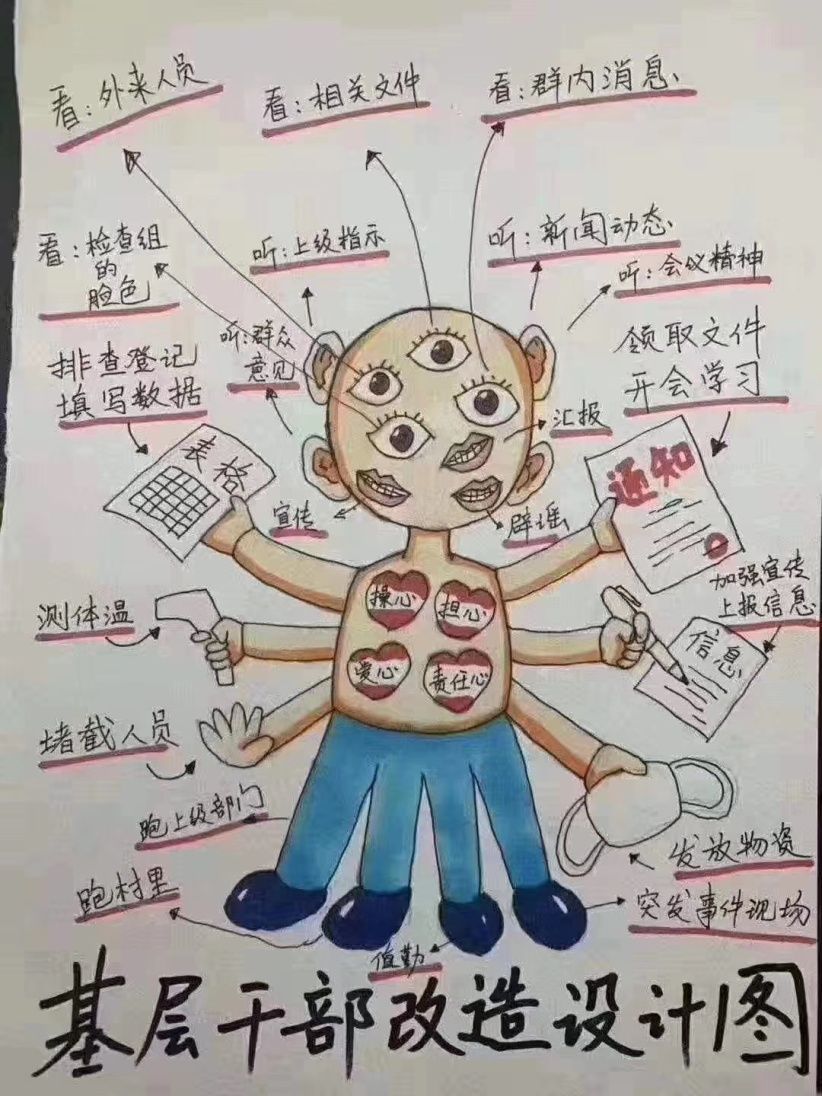 看：外来人员
看：相关文件
看：群内消息
看：检查组
的
脸色
听：上级指示
听：新闻动态
听：会议精神
排查登记
填写数据
听：群众
意见
领取文件
开会学习
汇报
表格
通知
宣传
辟谣
测体温
操心
担心
爱心
责任心
加强宣传
上报信息
信息
堵截人员
跑上级部门
跑村里
值勤
发放物资
突发事件现场
基层干部改造设计图